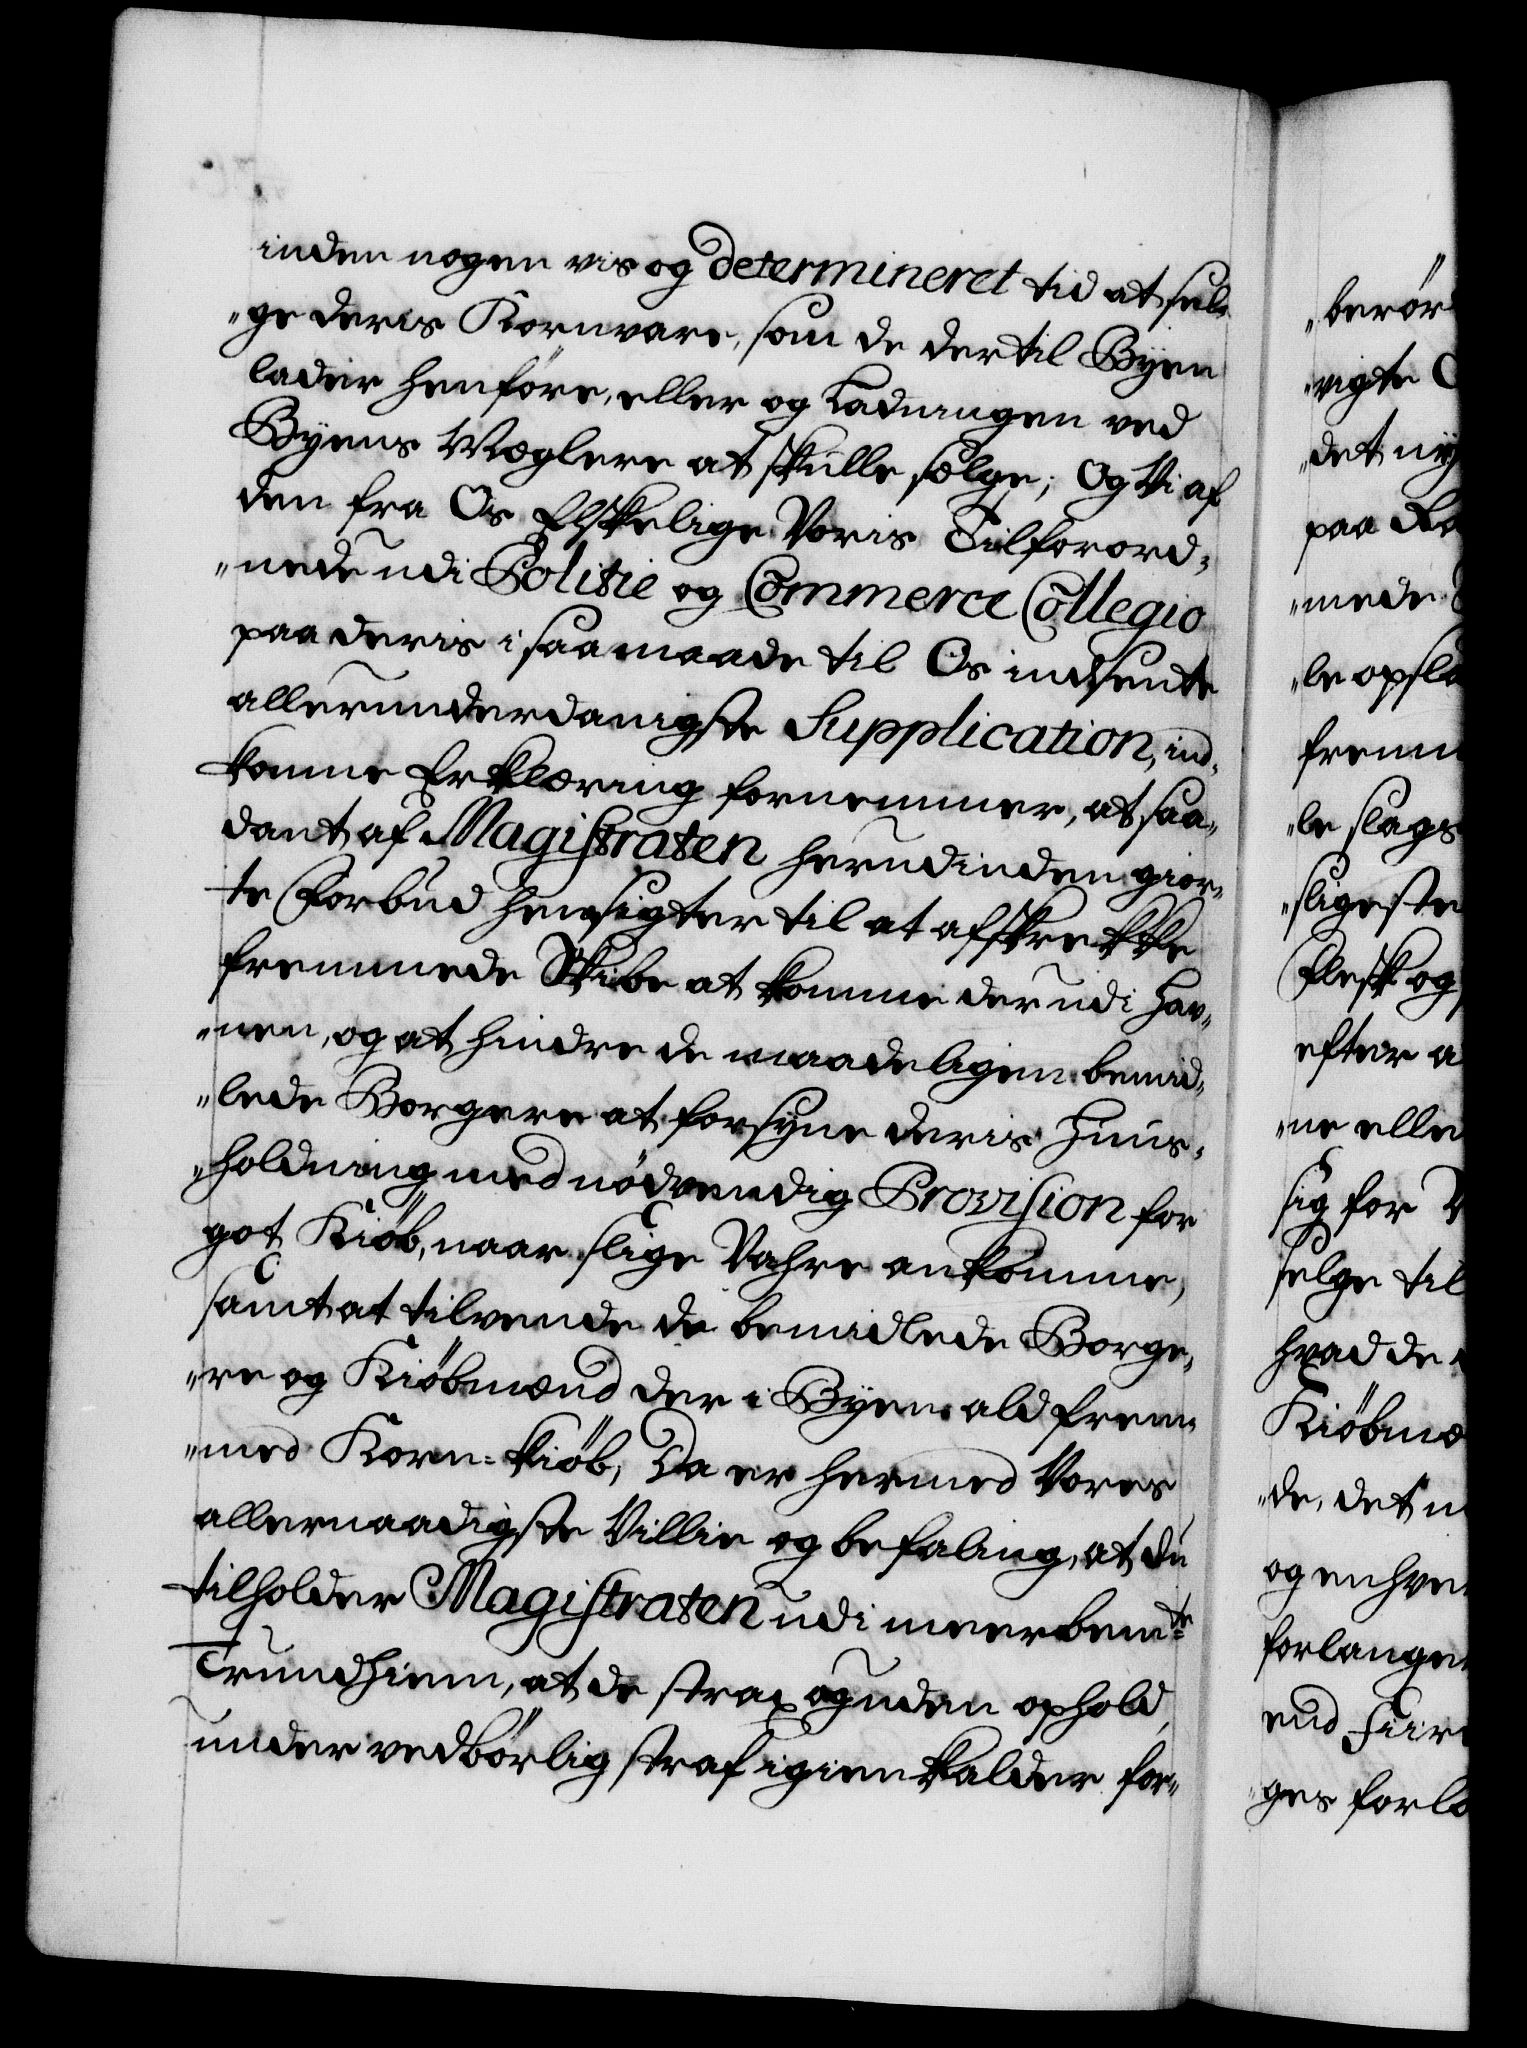 inden nogen vis og determineret tid at sel„
„ge deris Kornvare, som de der til Byen
lader henføre, eller og Ladningen ved
Byens Mæglere at skulle sælge; Og Vi af
den fra Os Elskelige Voris Tilforord„
„nede udi Politie og Commerce Collegio
paa deris i saa maade til Os indsendte
allerunderdanigste Supplication, ind„
komne Erklæring fornemmer, at saa„
dant af Magistraten herudinden gior„
te Forbud hensigter til at afskrekke
fremmede Skibe at komme der udi Hav„
„nen, og at hindre de maadeligen bemid„
„lede Borgere at forsyne deris Huus„
„holdning med nødvendig Provision for
got Kiøb, naar slige Vahre ankomme,
samt at tilvende de bemidlede Borge„
„re og Kiøbmænd der i Byen ald frem„
„med Korn-kiøb, Da er hermed Vores
allernaadigste Villie og befaling, at du
tilholder Magistraten udi meerbemte
Trundhiem, at de strax og uden ophold,
under vedbørlig straf igienkalder for„
„berør
„vigte
„det ny
paa Ra
„mede
„le opsla
frem
„le slags
„sligeste
Flesk og
efter a
„ne elle
sig for V
selge til
hvad de
Kiøbmæ
„de, det
og enhver
forlange
end Fiire
„ges forlø